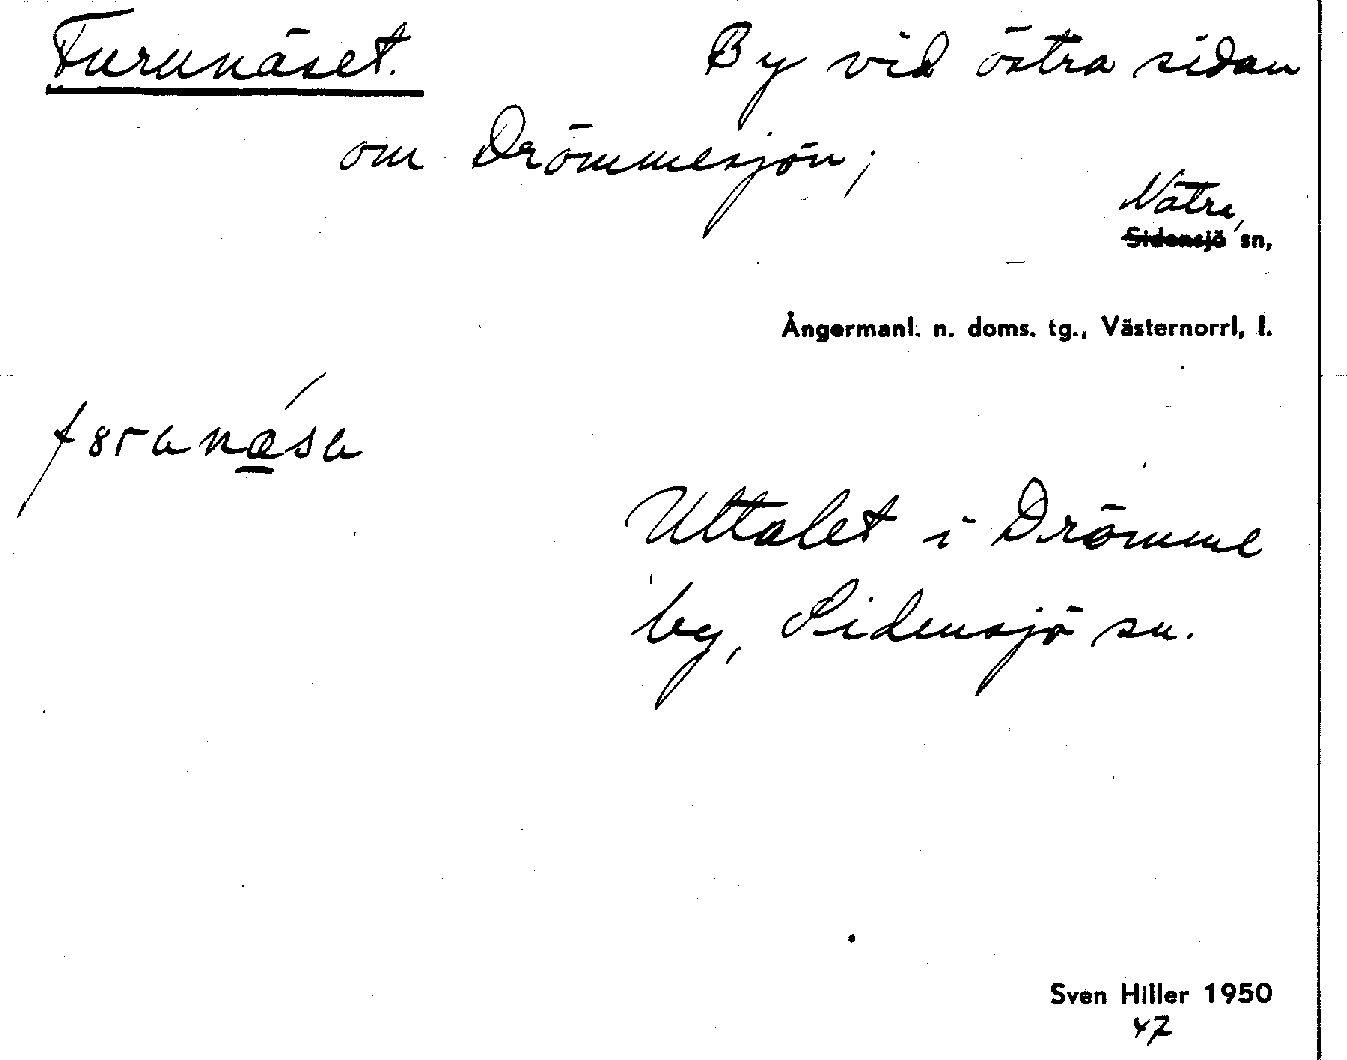 Furunäset. By vid östra sidan
om Drömmesjön;
Nätra,
Sidensjö sn,
Ångermanl. n. doms. tg., Västernorrl, l.
Uttalet i Drömme
by, Sidensjö sn.
Sven Hiller 1950
47